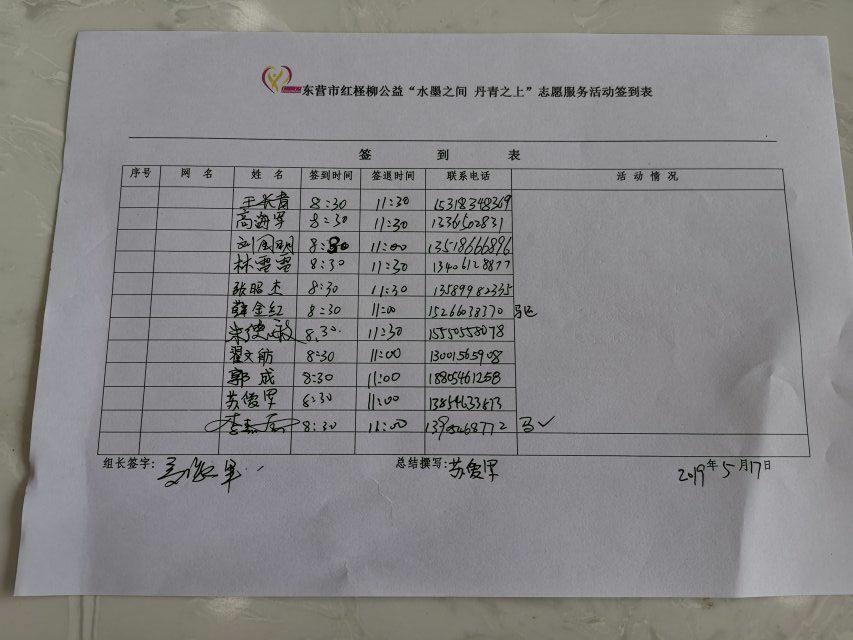 东营市红柽柳公益“水墨之间 丹青之上”志愿服务活动签到表
签 到 表
序号 网 名 姓 名 签到时间 签退时间 联系电话 活 动 情 况
王长青 8:30 11:30 15318348369
高海军 8:30 11:30
刘国明 8:30 11:00 13518666896
林雪雪 8:30 11:30 13406128877
张昭杰 8:30 11:30 13589982335
薛金红 8:30 11:00 15266038370
朱德敏 8:30 11:30 15550558078
翟文舫 8:30 11:00 13001565908
郭成 8:30 11:00 18805461258
苏俊军 8:30 11:00 13854633813
8:30 11:00
组长签字: 总结撰写: 苏俊军 2019年5月17日